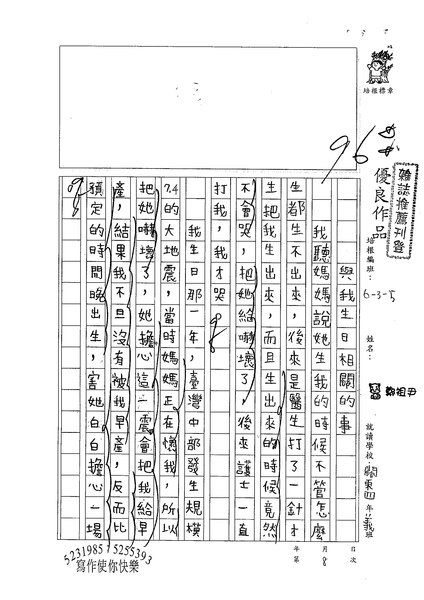 培根標章
96
雜誌推薦刊登
優良作品
培根編班：6-3-5
姓名：鄭祖尹
就讀學校 關東 四年 義班
月 8 日 次
年 第
與我生日相關的事
我聽媽媽說她生我的時候不管怎麼
生都生不出來，後來是醫生打了一針才
生把我生出來，而且生出來的時候竟然
不會哭，把她給嚇壞了，後來護士一直
打我，我才哭。
我生日那一年，臺灣中部發生規模
7.4的大地震，當時媽媽正在懷我，所以
把她嚇壞了，她擔心這一震會把我給早
產，結果我不旦沒有被我早產，反而比
預定的時間晚出生，害她白白擔心一場
。
5231985 5255393
寫作使你快樂